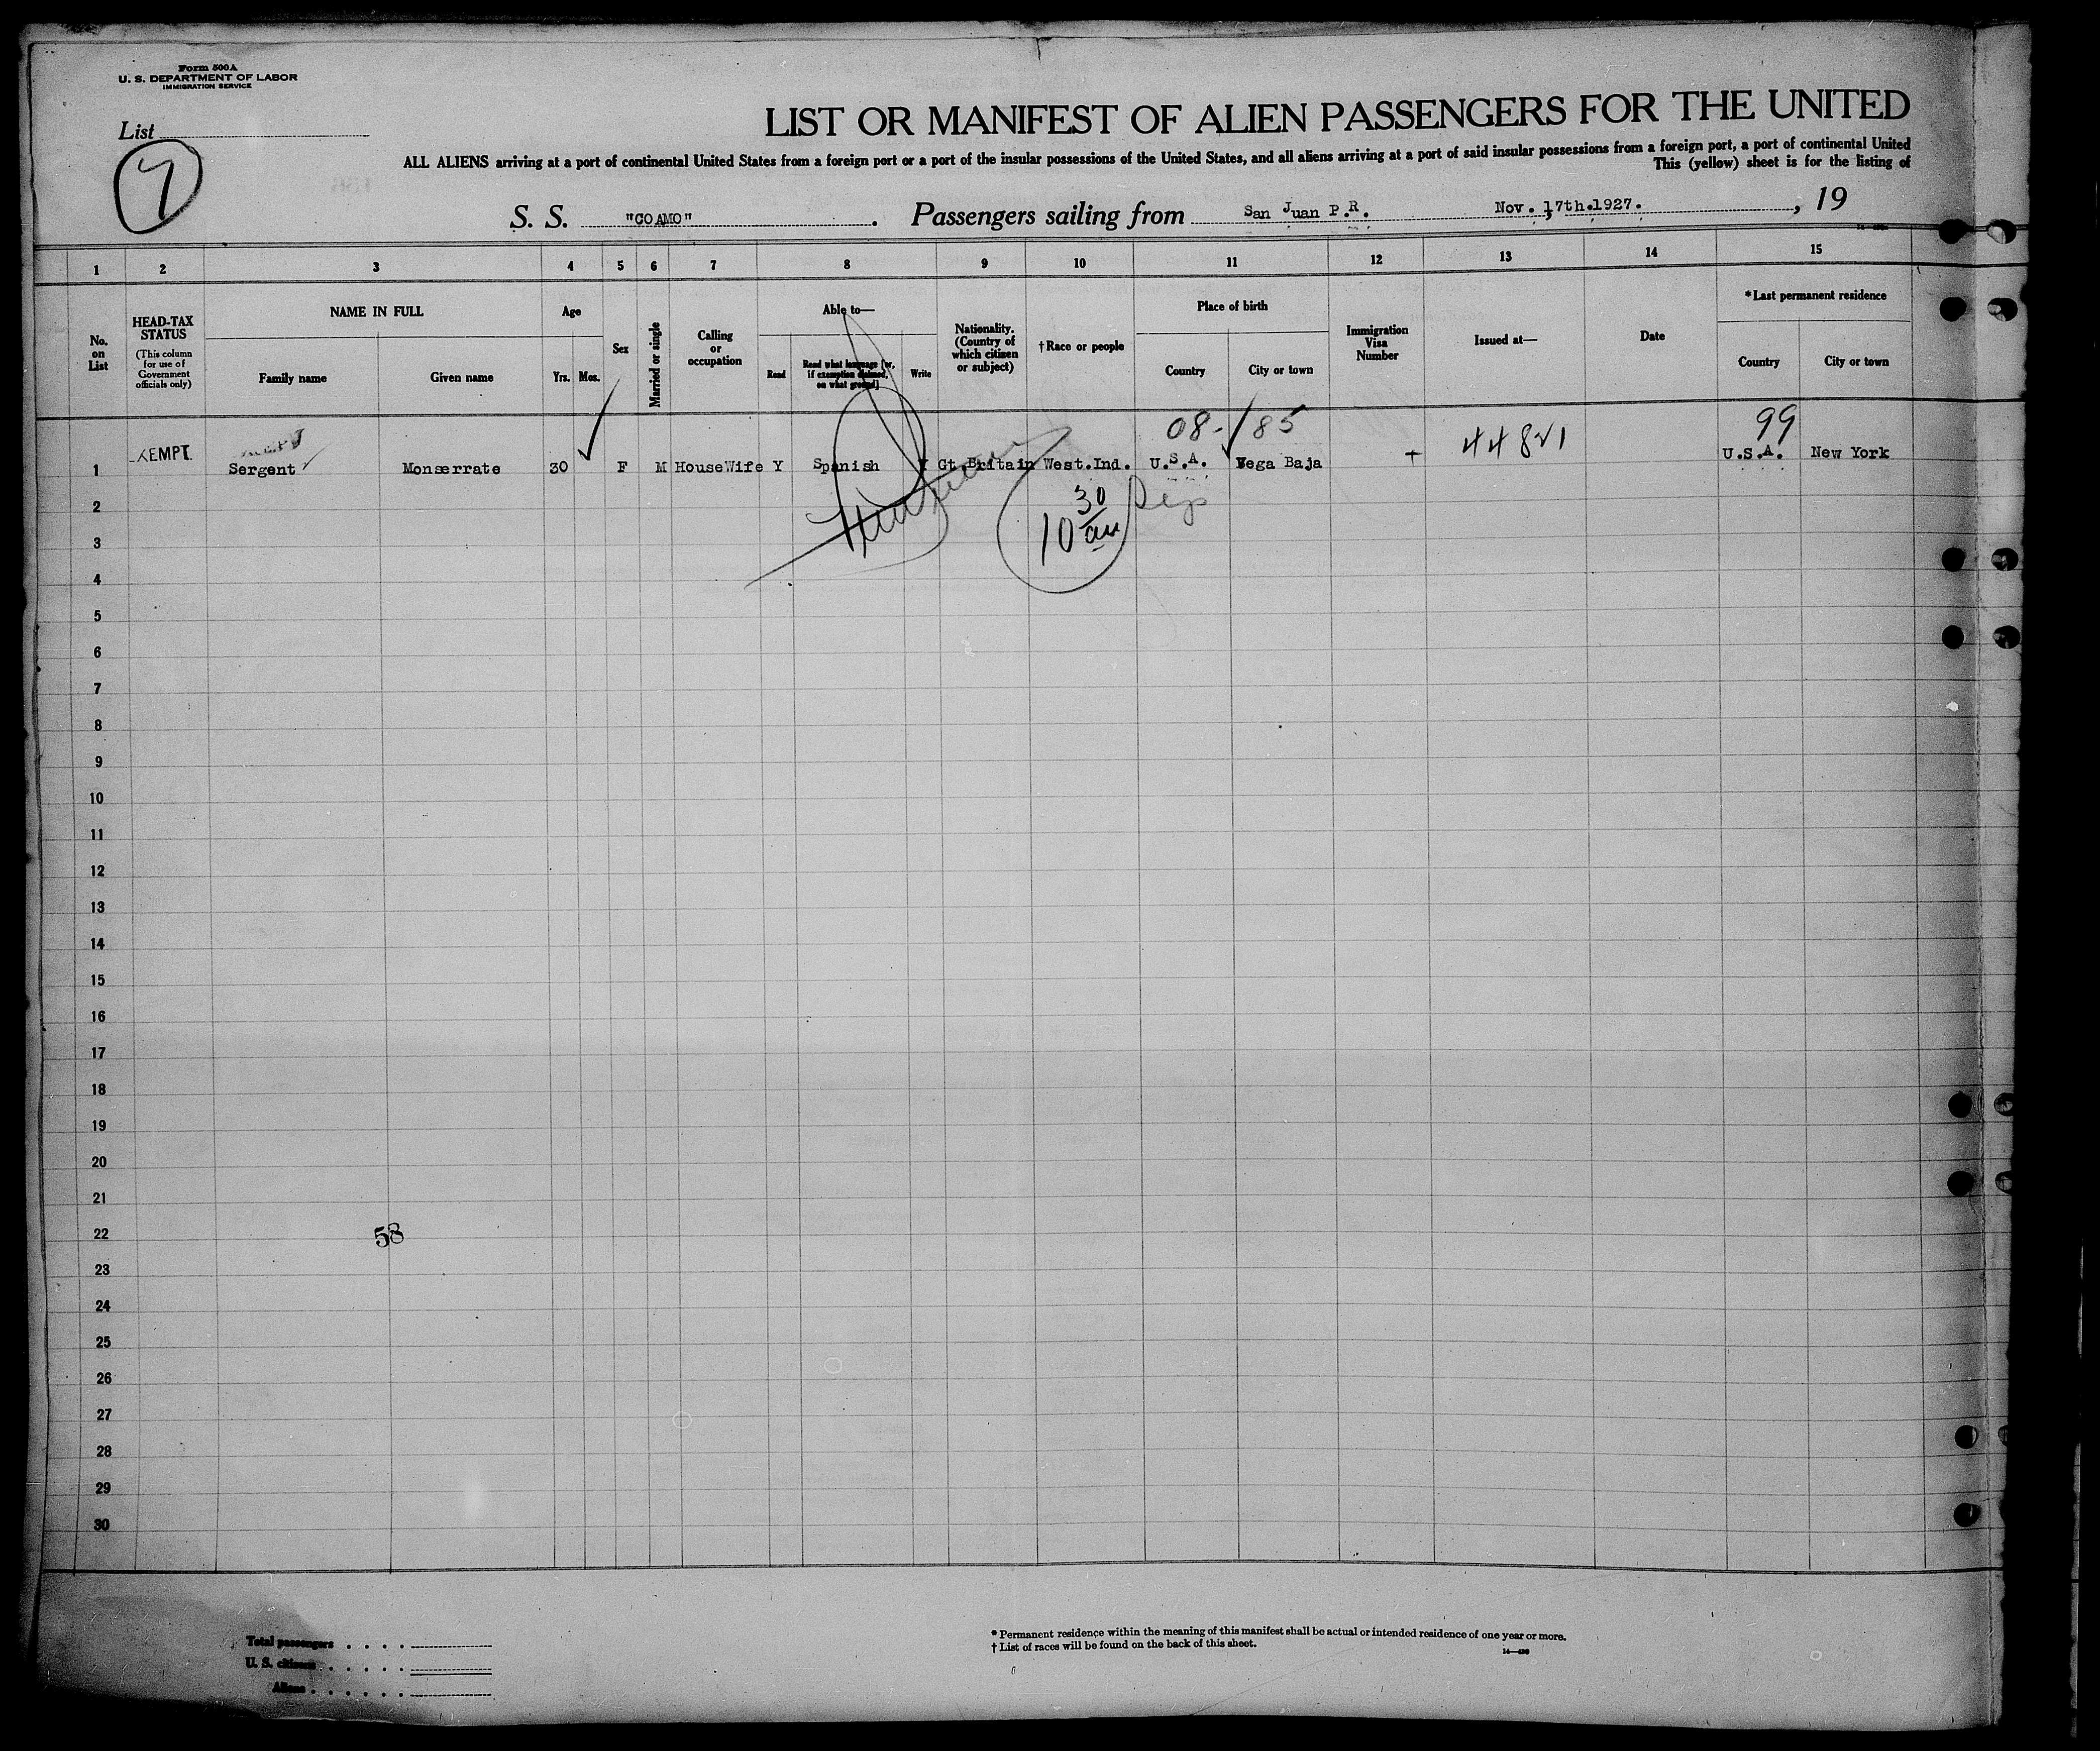 Form 500A
U. S. DEPARTMENT OF LABOR
IMMIGRATION SERVICE
List
7
LIST OR MANIFEST OF ALIEN PASSENGERS FOR THE UNITED
ALL ALIENS arriving at a port of continental United States from a foreign port or a port of the insular possessions of the United States, and all aliens arriving at a port of said insular possessions from a foreign port, a port of continental United
This (yellow) sheet is for the listing of
S. S. "COAMO". Passengers sailing from San Juan P.R. Nov. 17th.1927. , 19
1 2 3 4 5 6 7 8 9 10 11 12 13 14 15
No. on List
HEAD-TAX STATUS
(This column for use of Government officials only)
NAME IN FULL
Family name Given name
Age
Yrs. Mos.
Sex
Married or single
Calling or occupation
Able to—
Read Read what language [or, if exemption claimed, on what ground] Write
Nationality. (Country of which citizen or subject)
†Race or people
Place of birth
Country City or town
Immigration Visa Number
Issued at—
Date
*Last permanent residence
Country City or town
08- 85 44821 99
1 XEMPT Sergent Monserrate 30 F M HouseWife Y Spanish Y Gt.Britain West.Ind. U.S.A. Vega Baja U.S.A. New York
10 30 am
2
3
4
5
6
7
8
9
10
11
12
13
14
15
16
17
18
19
20
21
22
58
23
24
25
26
27
28
29
30
Total passengers
U. S. citizens
Aliens
* Permanent residence within the meaning of this manifest shall be actual or intended residence of one year or more.
† List of races will be found on the back of this sheet.